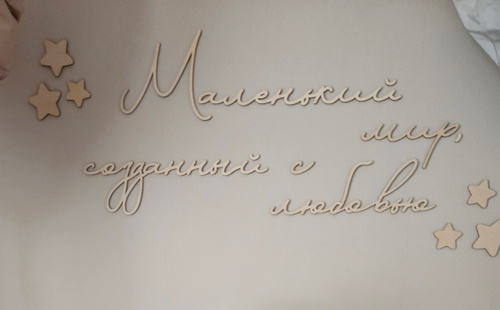 Маленький
мир,
созданный с
любовью